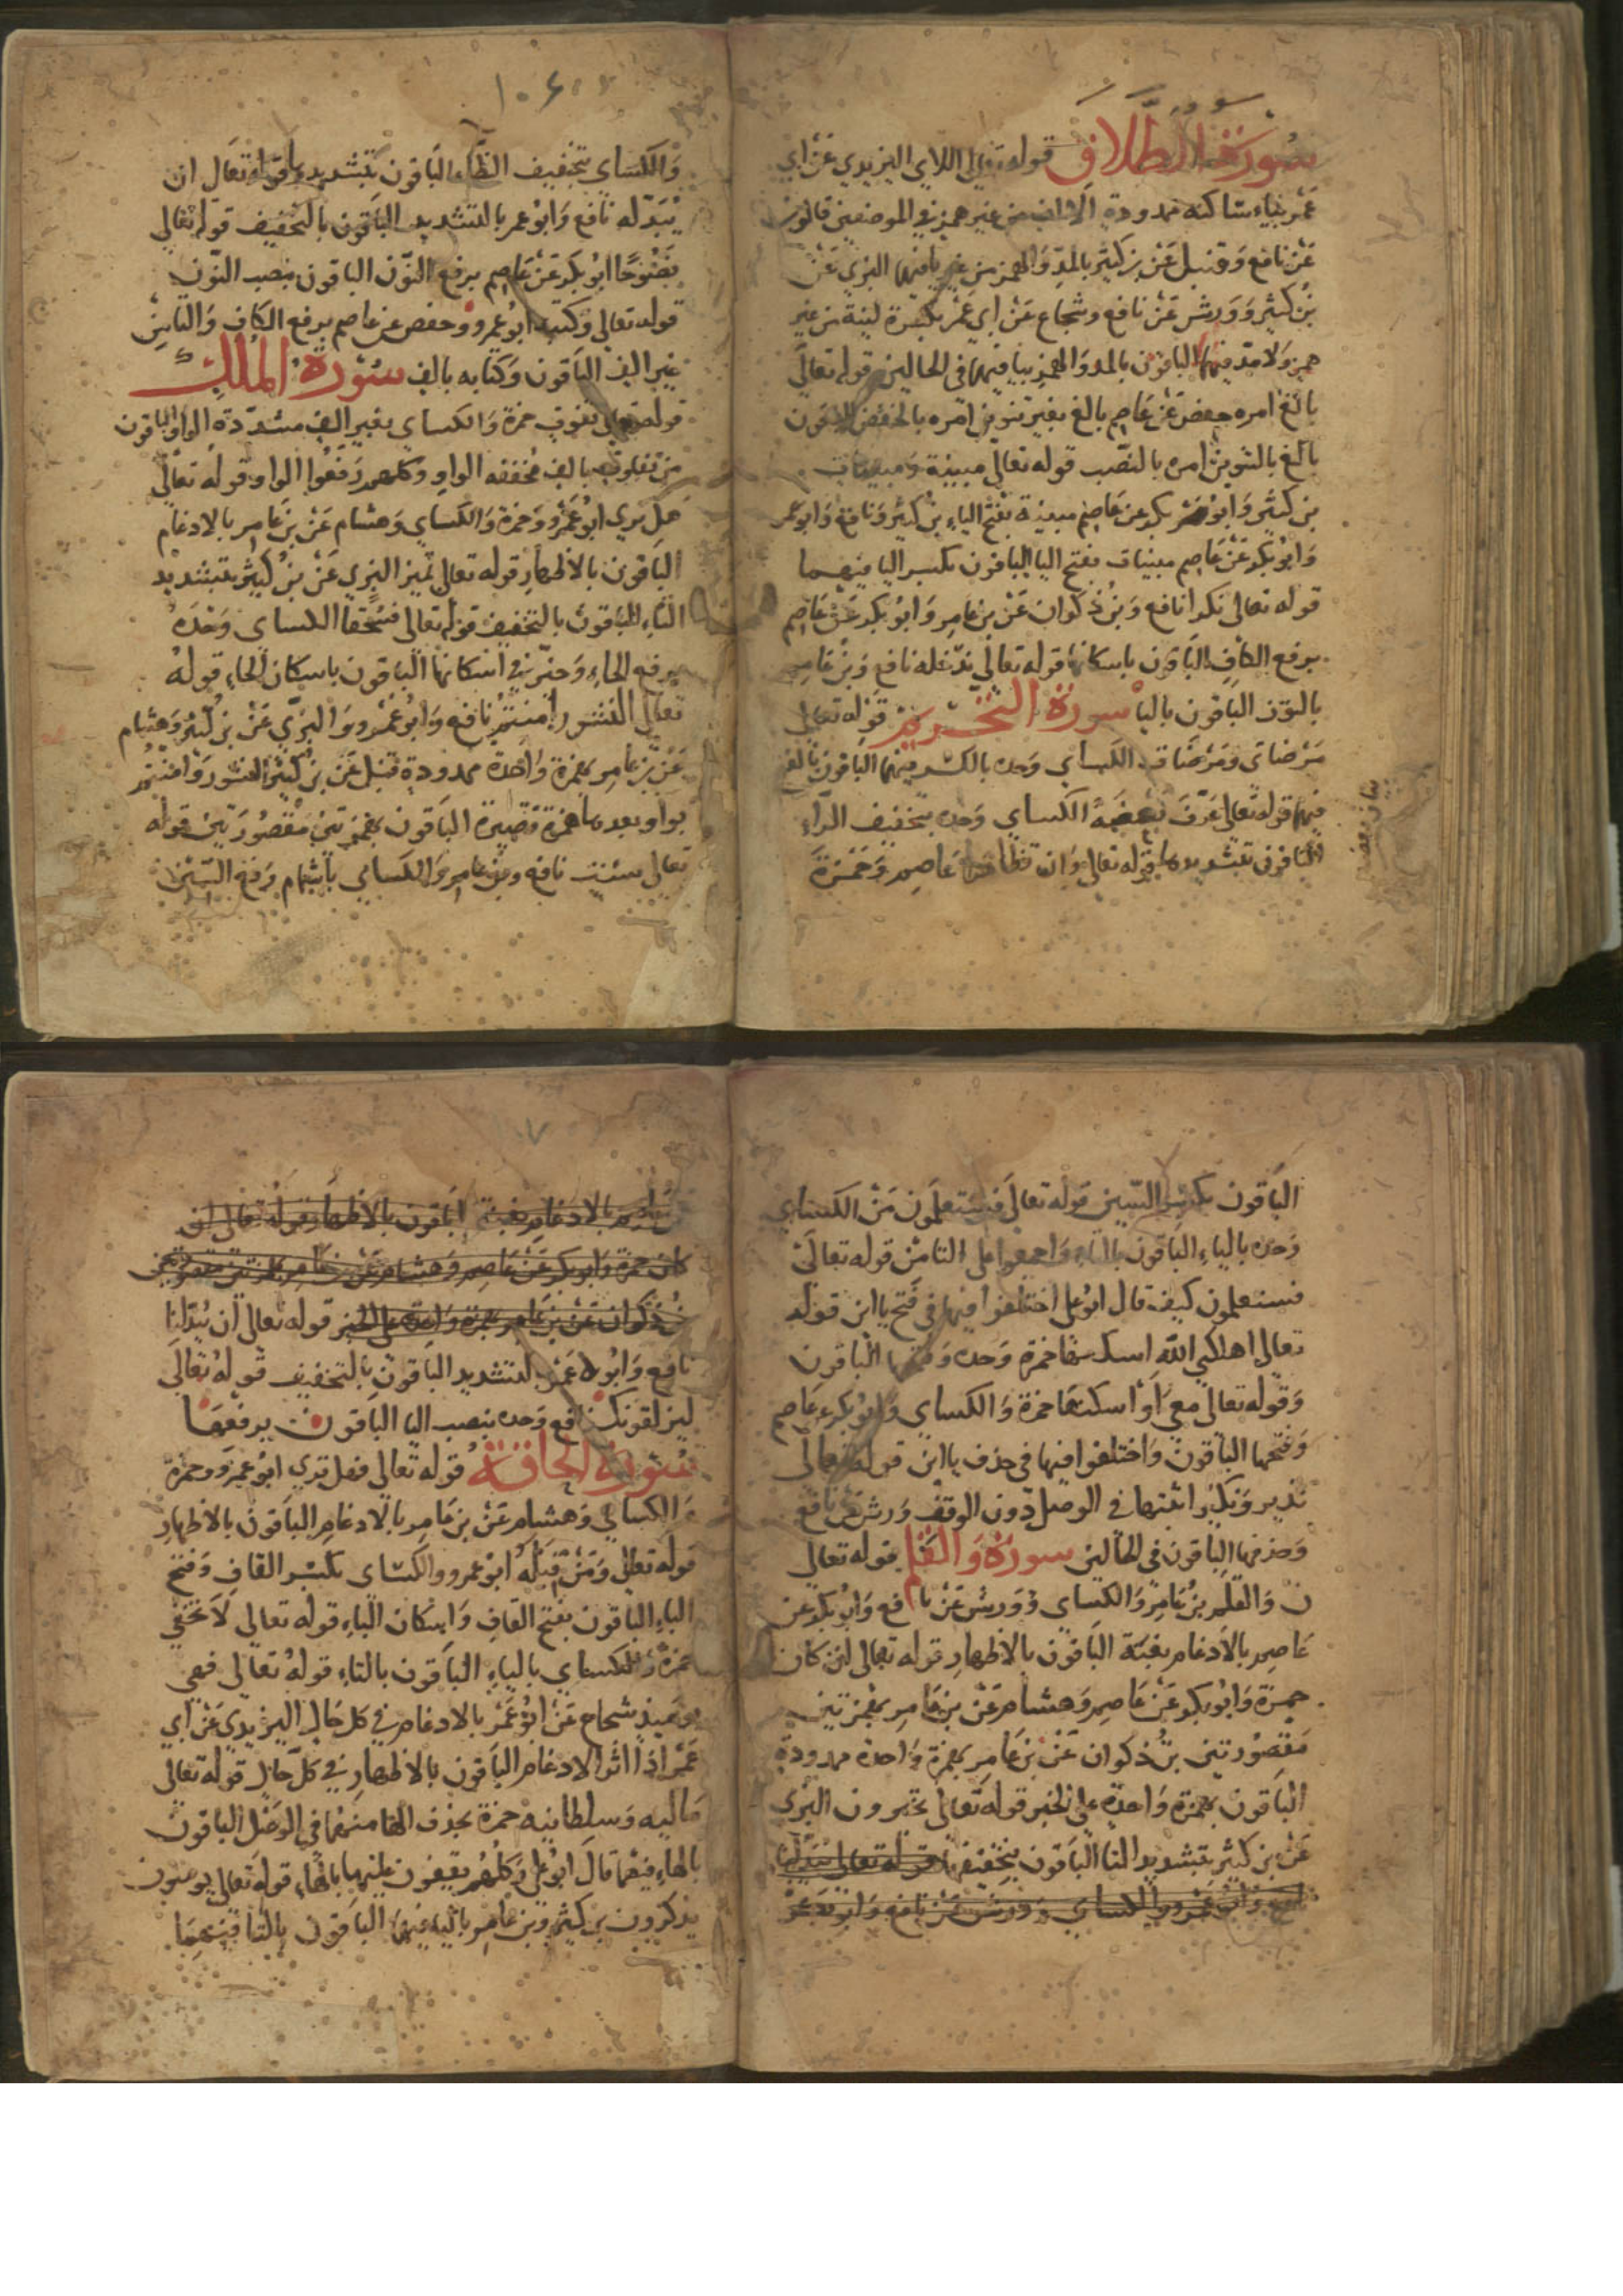 سورة الطلاق قوله تعالى اللاي اليزيدي عن ابي
عمر بياء ساكنه ممدودة الالف من غير همز في الموضعين قالون
عن نافع وقنبل عن بن كثير بالمد والهمز من غير يا فيهما البزي عن
بن كثير وورش عن نافع وشجاع عن ابي عمر بكسرة لينة من غير
همز ولا مد فيهما الباقون بالمد والهمز بيا فيهما في الحالين قوله تعالى
بالغ امره حفص عن عاصم بالغ بغير تنوين امره بالخفض الباقون
بالغ بالتنوين امره بالنصب قوله تعالى مبينة ومبينات
بن كثير وابو بكر عن عاصم مبينة بفتح الياء بن كثير ونافع وابو عمر
وابو بكر عن عاصم مبينات بفتح اليا الباقون بكسر اليا فيهما
قوله تعالى نكرا نافع وبن ذكوان عن بن عامر وابو بكر عن عاصم
برفع الكاف الباقون باسكانها قوله تعالى ندخله نافع وبن عامر
بالنون الباقون باليا سورة التحريم قوله تعالى
مرضاتي ومرضات الكساي وحده بالكسر فيهما الباقون بالفتح
فيهما قوله تعالى عرف بعضه الكساي وحده بتخفيف الراء
الباقون بتشديدها قوله تعالى وان تظاهرا عاصم وحمزة
والكساي بتخفيف الظاء الباقون بتشديدها قوله تعالى ان
يبدله نافع وابو عمر بالتشديد الباقون بالتخفيف قوله تعالى
نصوحا ابو بكر عن عاصم برفع النون الباقون بنصب النون
قوله تعالى وكتبه ابو عمرو وحفص عن عاصم برفع الكاف والتا من
غير الف الباقون وكتابه بالف سورة الملك
قوله تعالى تفوت حمزة والكساي بغير الف مشددة الواو الباقون
من تفاوت بالف مخففه الواو وكلهم رفعوا الواو قوله تعالى
هل تري ابو عمرو وحمزة والكساي وهشام عن بن عامر بالادغام
الباقون بالاظهار قوله تعالى تميز البزي عن بن كثير بتشديد
التاء الباقون بالتخفيف قوله تعالى فسحقا الكساي وحده
برفع الحاء وخير في اسكانها الباقون باسكان الحاء قوله
تعالى النشور امنتم نافع وابو عمرو والبزي عن بن كثير وهشام
عن بن عامر بهمزة واحدة ممدودة قنبل عن بن كثير النشور وامنتم
بواو بعدها همزة قصيرة الباقون بهمزتين مقصورتين قوله
تعالى سيئت نافع وبن عامر والكساي باشمام رفع السين
الباقون بكسر السين قوله تعالى فسيعلمون من الكساي
وحده بالياء الباقون بالتاء واجمعوا على التا من قوله تعالى
فستعلمون كيف قال ابو علي اختلفوا فيها في فتح يا اين قوله
تعالى اهلكني الله اسكنها حمزة وحده وفتحها الباقون
وقوله تعالى معي او اسكنها حمزة والكساي وابو بكر عن عاصم
وفتحها الباقون واختلفوا فيها في حذف يا اين قوله تعالى
نذير ونكير اثبتها في الوصل دون الوقف ورش عن نافع
وحذفها الباقون في الحالين سورة والقلم قوله تعالى
ن والقلم بن عامر والكساي وورش عن نافع وابو بكر عن
عاصم بالادغام بغنة الباقون بالاظهار قوله تعالى لئن كان
حمزة وابو بكر عن عاصم وهشام عن بن عامر بهمزتين
مقصورتين بن ذكوان عن بن عامر بهمزة واحدة ممدودة
الباقون بهمزة واحدة على الخبر قوله تعالى تخيرون البزي
عن بن كثير بتشديد التا الباقون بتخفيفها قوله تعالى يبدلنا
نافع وابو عمرو والكساي وورش عن نافع وابو بكر عن
عاصم بالادغام بغنة الباقون بالاظهار قوله تعالى لئن
كان حمزة وابو بكر عن عاصم وهشام عن بن عامر بهمزتين مقصورتين
بن ذكوان عن بن عامر بهمزة واحدة على الخبر قوله تعالى ان يبدلنا
نافع وابو عمر بالتشديد الباقون بالتخفيف قوله تعالى
ليزلقونك نافع وحده بنصب اليا الباقون برفعها
سورة الحاقة قوله تعالى فهل تري ابو عمرو وحمزة
والكساي وهشام عن بن عامر بالادغام الباقون بالاظهار
قوله تعالى ومن قبله ابو عمرو والكساي بكسر القاف وفتح
الباء الباقون بفتح القاف واسكان الباء قوله تعالى لا تخفي
حمزة والكساي بالياء الباقون بالتاء قوله تعالى فهي
يوميذ شجاع عن ابو عمر بالادغام في كل حال اليزيدي عن ابي
عمر اذا اثر الادغام الباقون بالاظهار في كل حال قوله تعالى
ماليه وسلطانيه حمزة بحذف الها منهما في الوصل الباقون
بالهاء فيهما قال ابو علي وكلهم يقفون عليهما بالهاء قوله تعالى يومنون
يذكرون بن كثير وبن عامر بالياء فيهما الباقون بالتا فيهما